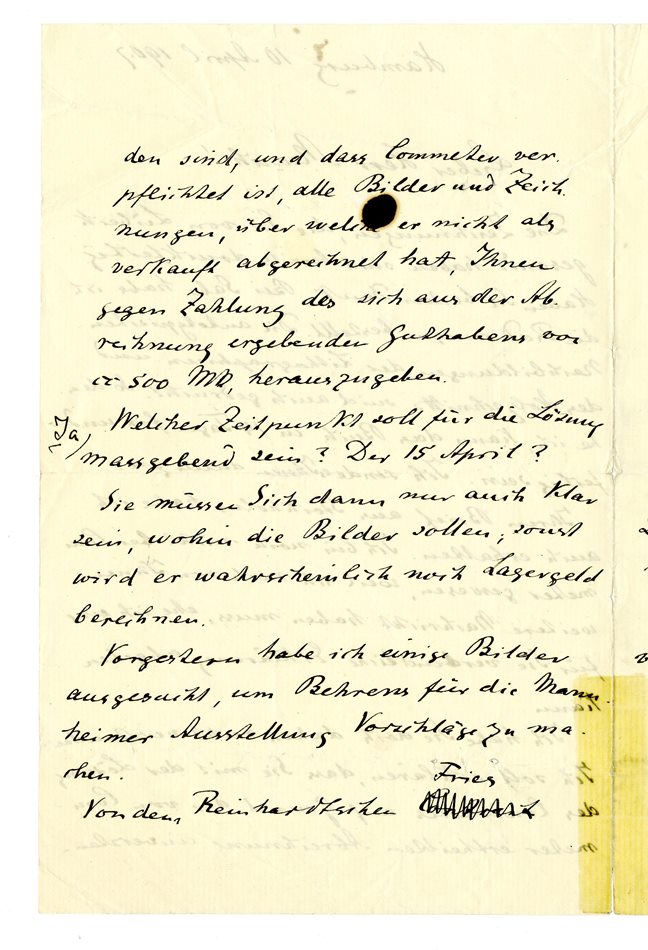 den sind, und dass Commeter ver-
pflichtet ist, alle Bilder und Zeich
nungen, über welche er nicht als
verkauft abgerechnet hat, Ihnen
gegen Zahlung des sich aus der Ab-
rechnung ergebenden Guthabens von
cc 500 Mk, herauszugeben.
Ja)
Welcher Zeitpunkt soll für die Lösung
massgebend sein? Der 15 April?
Sie müssen Sich dann nur auch klar
sein, wohin die Bilder sollen, sonst
wird er wahrscheinlich noch Lagergeld
berechnen.
Vorgestern habe ich einige Bilder
ausgesucht, um Behrens für die Mann-
heimer Ausstellung Vorschläge zu ma-
chen.
Von dem Reinhardtschen Fries